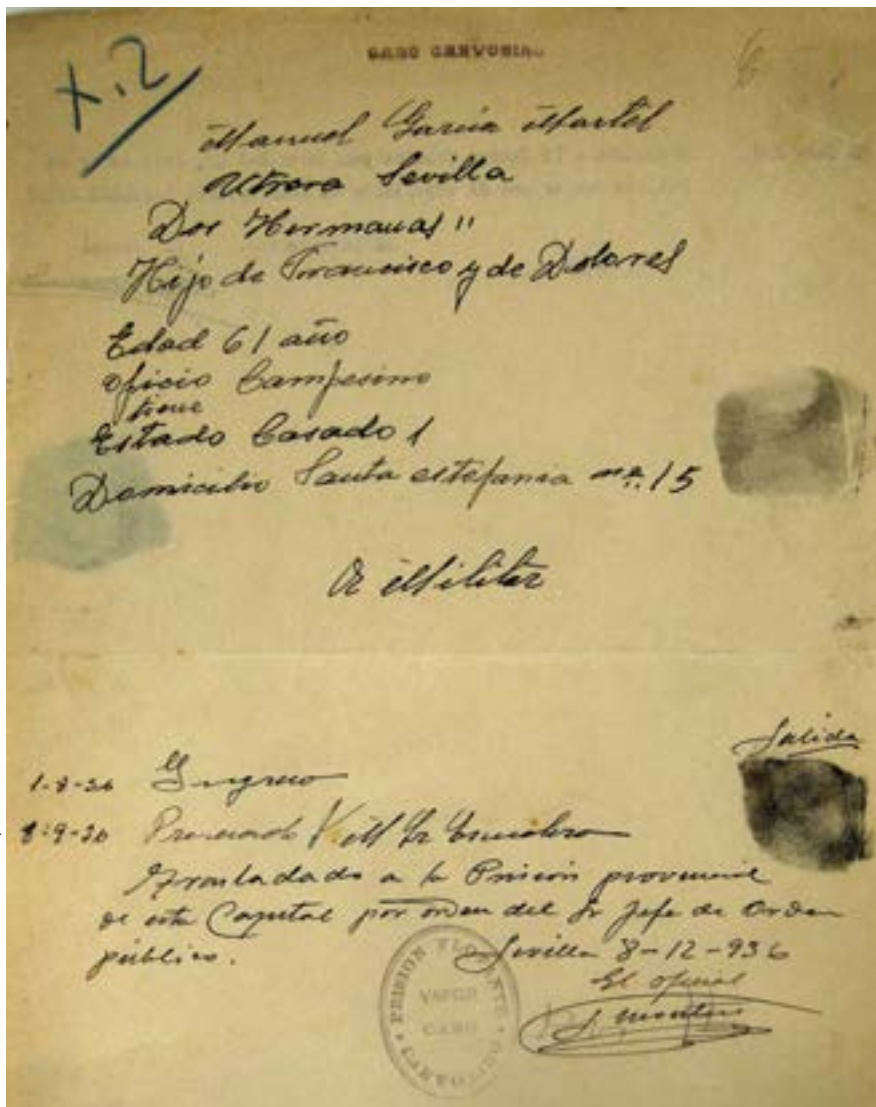 X.2
CABO CARVOEIRO
6
Manuel García Martel
Utrera Sevilla
Dos Hermanas "
Hijo de Francisco y de Dolores
Edad 61 año
oficio Campesino
tiene
Estado Casado 1
Domicilio Santa estefania nº 15
Militar
Salida
Ingreso
8-9-36
Trasladado a la Prisión provincial
de esta Capital por orden del Sr Jefe de Orden
público.
Sevilla 8-12-936
El oficial
PRISION FLOTANTE
VAPOR
CABO
CARVOEIRO